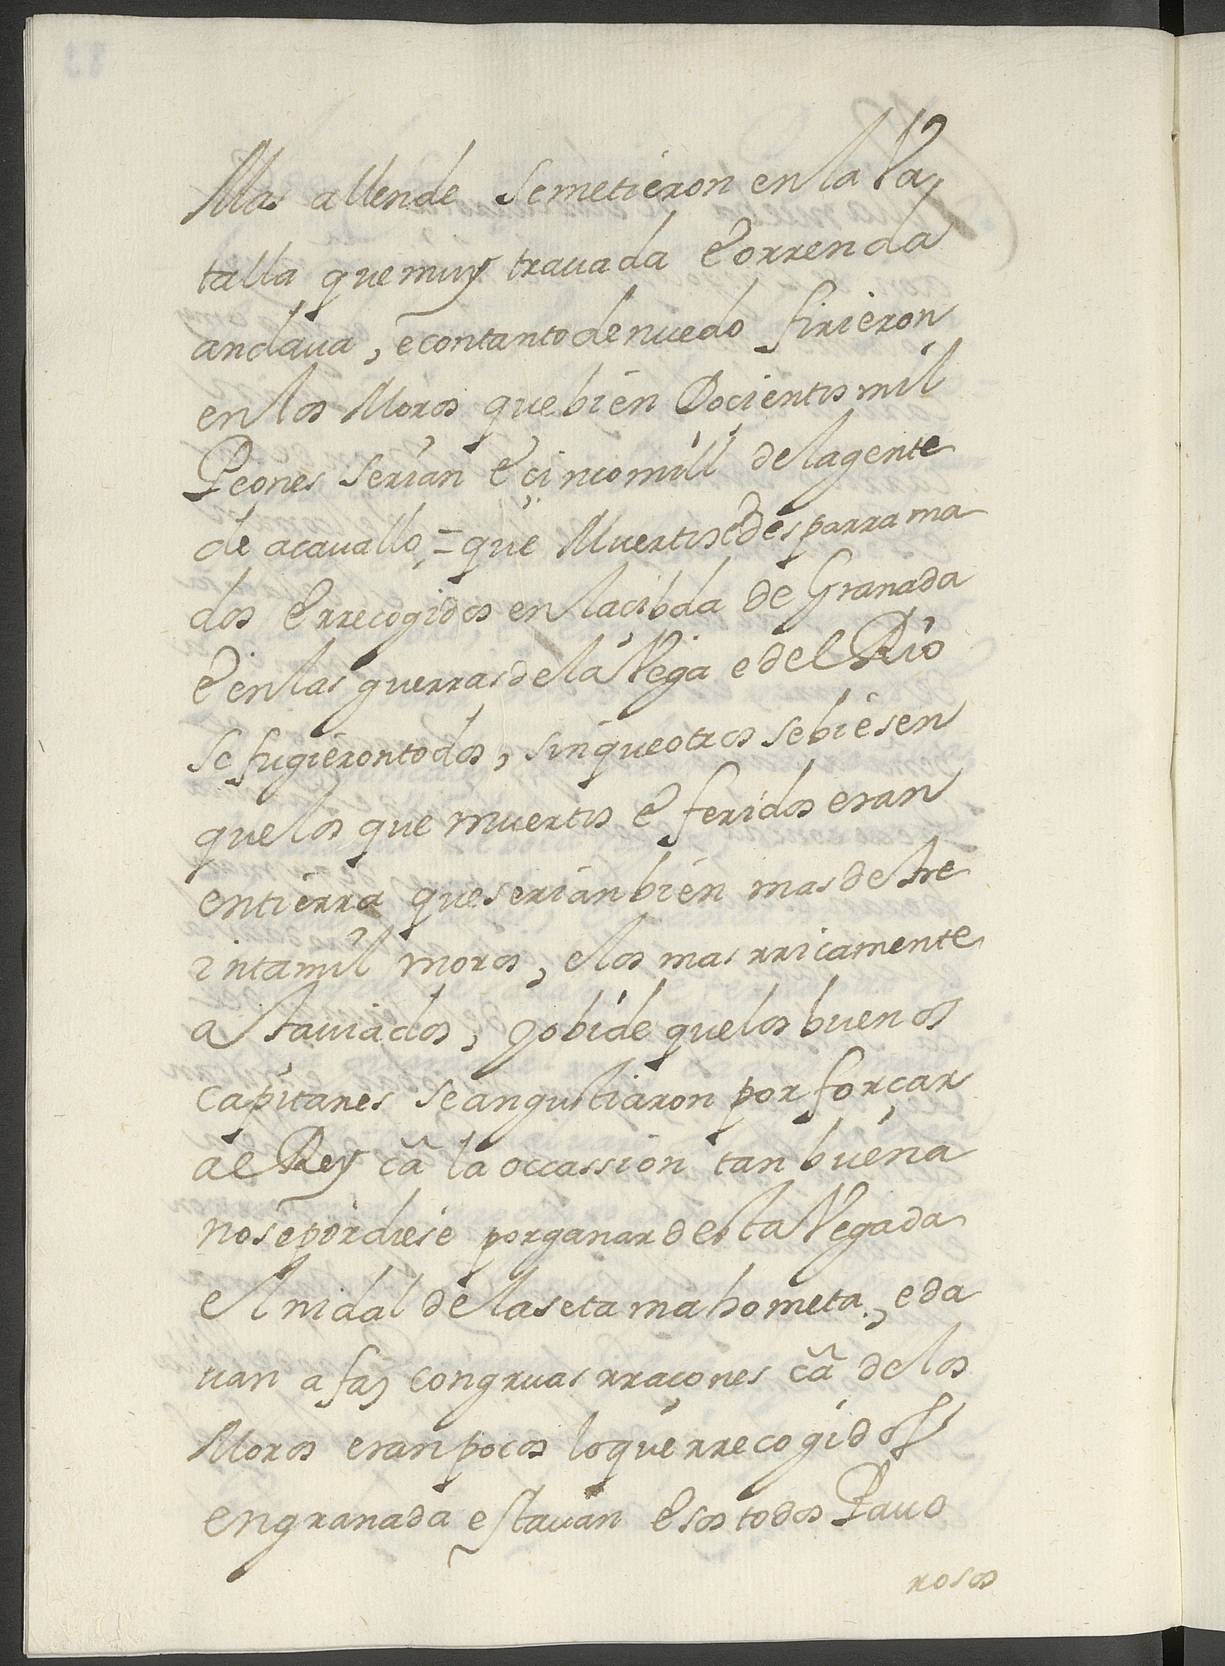 Mas allende se metieron en la Va
talla que muy travada e orrenda
andava, e con tanto denuedo firieron
en los Moros que bien Docientos mil
Peones serian e cinco mill de la gente
de acavallo,= que Muertos e desparrama
dos e rrecogidos en la cibda de Granada
e en las guerras de la Vega e del Rio
se fugieron todos, sin que otros se biesen
que los que muertos e feridos eran
en tierra que serian bien mas de tre
inta mil moros, e los mas rricamente
ataviados, Jo bide que los buenos
Capitanes se angustiaron por forcar
al Rey câ la occassion tan buena
no se perdiese por ganar desta Vegada
el nidal de la seta mahometa, e da
van a faz congruas rraçones câ de los
Moros eran pocos lo que rrecogidos
en granada estavan e sos todos Pavo
rosos